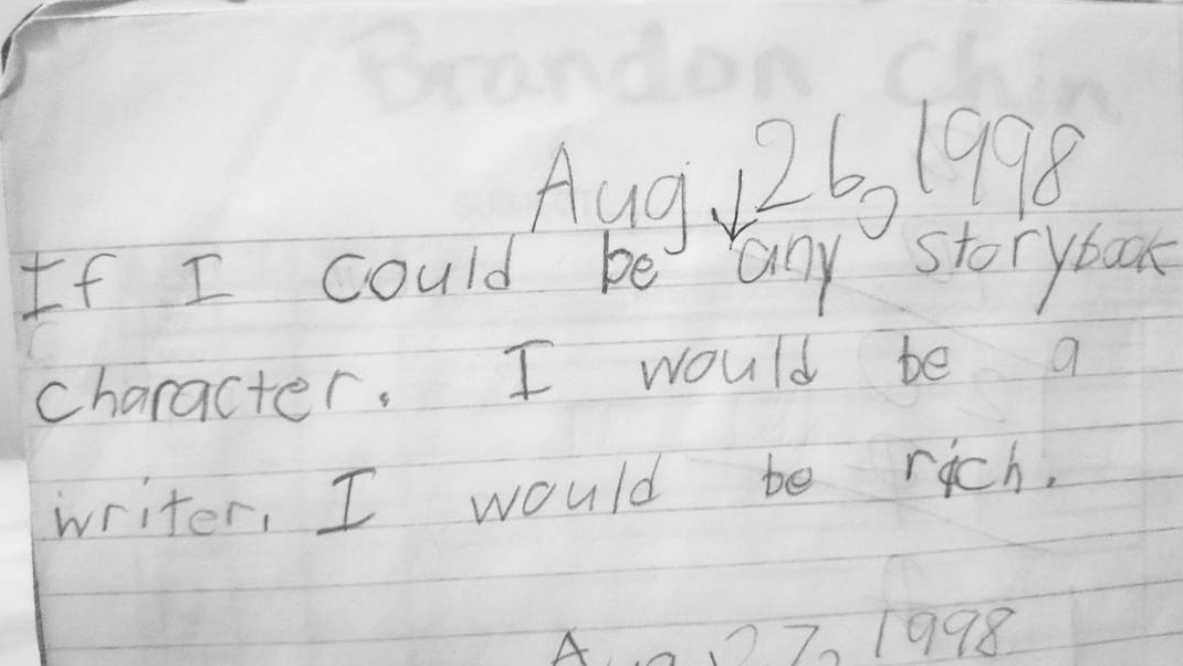 Brandon Chin
Aug ↓ 26, 1998
If I could be any storybook
character. I would be a
writer. I would be rich.
Aug 27, 1998